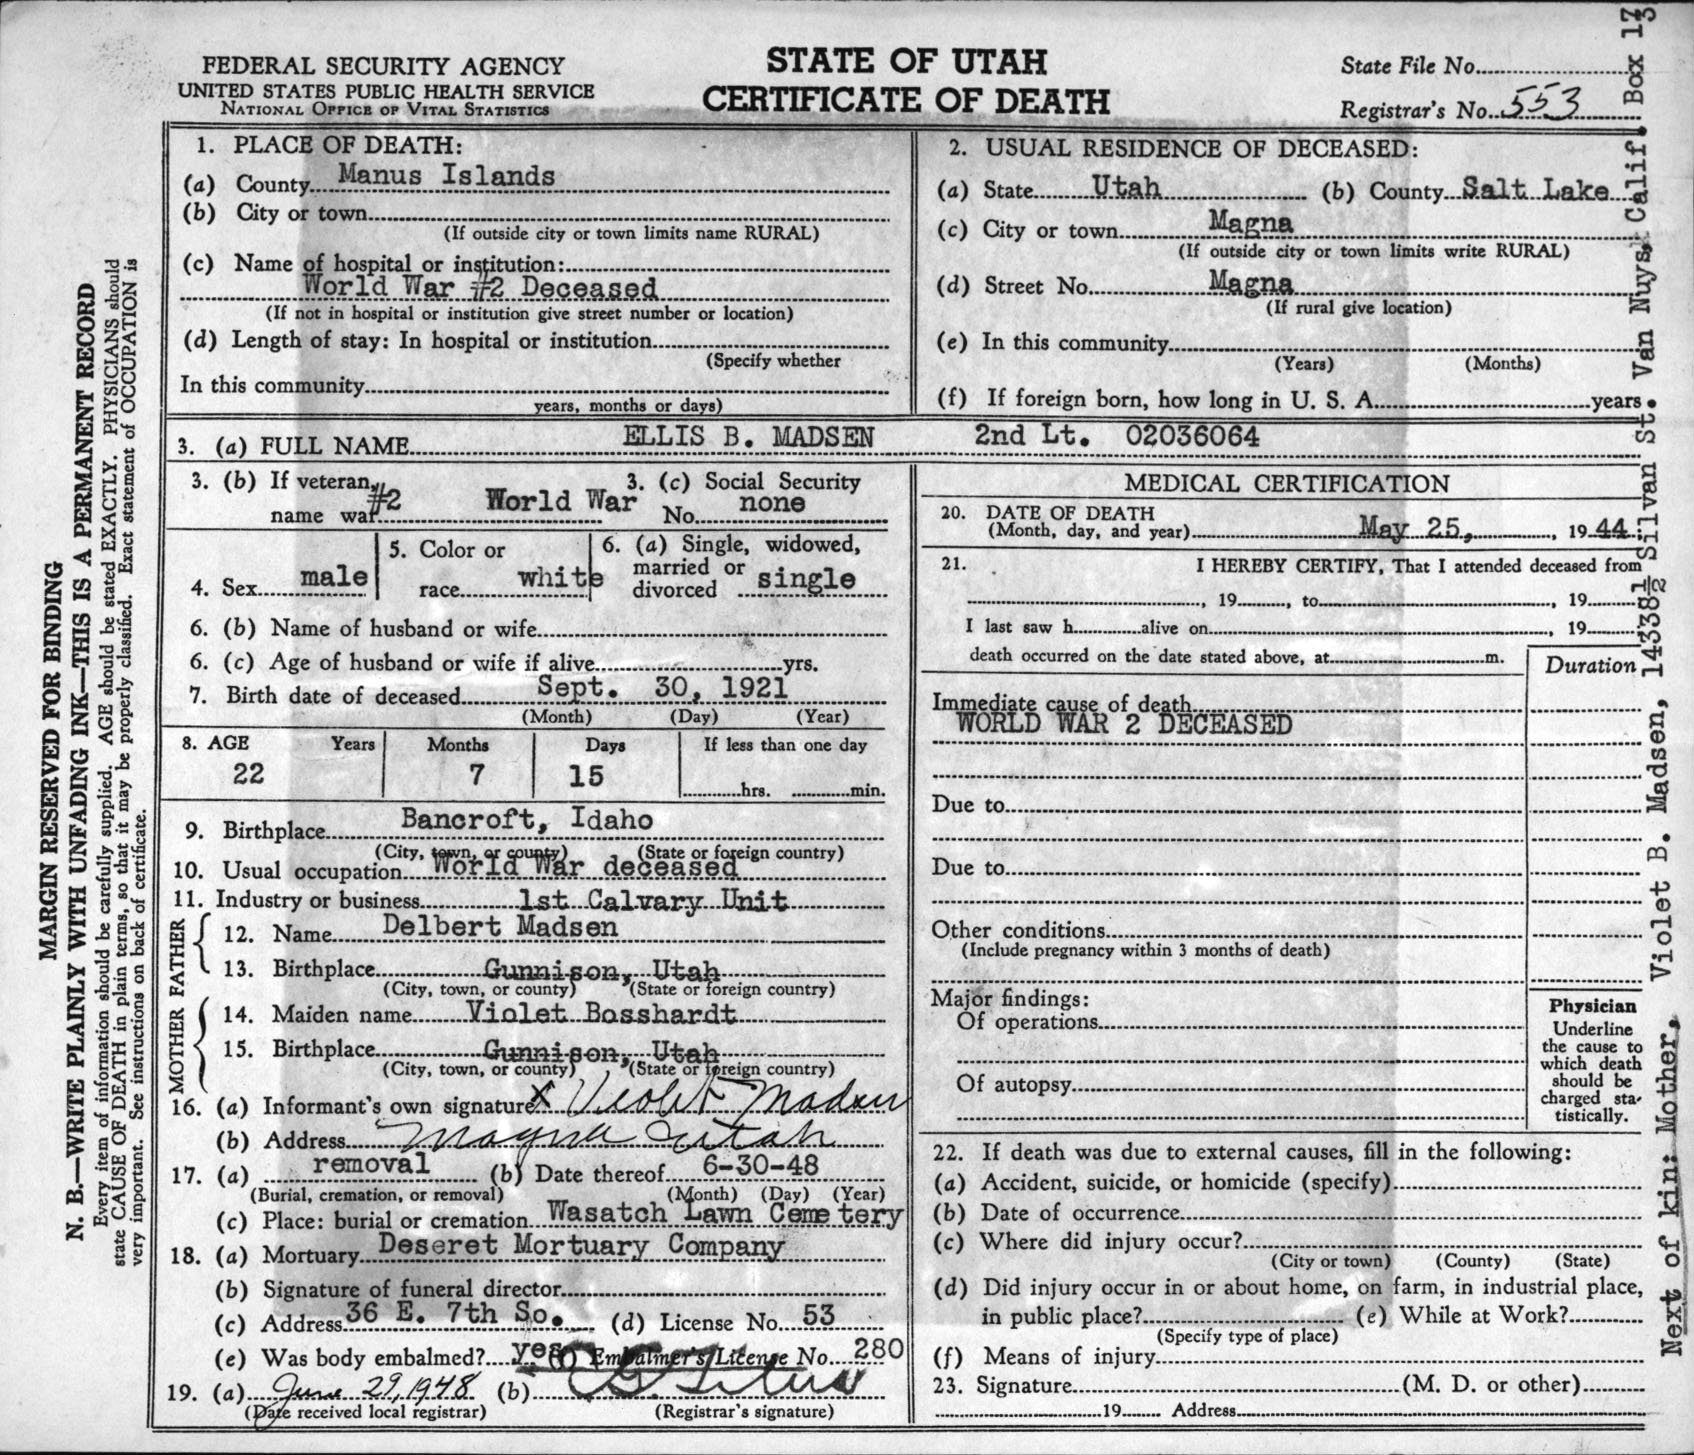 FEDERAL SECURITY AGENCY
UNITED STATES PUBLIC HEALTH SERVICE
NATIONAL OFFICE OF VITAL STATISTICS
STATE OF UTAH
CERTIFICATE OF DEATH
State File No.
Registrar's No. 553
1. PLACE OF DEATH:
(a) County Manus Islands
(b) City or town
(If outside city or town limits name RURAL)
(c) Name of hospital or institution:
World War #2 Deceased
(If not in hospital or institution give street number or location)
(d) Length of stay: In hospital or institution
(Specify whether
In this community
years, months or days)
2. USUAL RESIDENCE OF DECEASED:
(a) State Utah (b) County Salt Lake
(c) City or town Magna
(If outside city or town limits write RURAL)
(d) Street No. Magna
(If rural give location)
(e) In this community
(Years) (Months)
(f) If foreign born, how long in U. S. A. years.
3. (a) FULL NAME ELLIS B. MADSEN 2nd Lt. 02036064
3. (b) If veteran, name war #2 World War
3. (c) Social Security No. none
4. Sex male
5. Color or race white
6. (a) Single, widowed, married or divorced single
6. (b) Name of husband or wife
6. (c) Age of husband or wife if alive yrs.
7. Birth date of deceased Sept. 30, 1921
(Month) (Day) (Year)
8. AGE Years Months Days If less than one day
22 7 15 hrs. min.
9. Birthplace Bancroft, Idaho
(City, town, or county) (State or foreign country)
10. Usual occupation World War deceased
11. Industry or business 1st Calvary Unit
FATHER
12. Name Delbert Madsen
13. Birthplace Gunnison, Utah
(City, town, or county) (State or foreign country)
MOTHER
14. Maiden name Violet Bosshardt
15. Birthplace Gunnison, Utah
(City, town, or county) (State or foreign country)
16. (a) Informant's own signature X Violet Madsen
(b) Address Magna Utah
17. (a) removal (b) Date thereof 6-30-48
(Burial, cremation, or removal) (Month) (Day) (Year)
(c) Place: burial or cremation Wasatch Lawn Cemetery
18. (a) Mortuary Deseret Mortuary Company
(b) Signature of funeral director
(c) Address 36 E. 7th So. (d) License No. 53
(e) Was body embalmed? yes (f) Embalmer's License No. 280
19. (a) June 29, 1948 (b)
(Date received local registrar) (Registrar's signature)
MEDICAL CERTIFICATION
20. DATE OF DEATH
(Month, day, and year) May 25, 1944
21. I HEREBY CERTIFY, That I attended deceased from
, 19 , to , 19
I last saw h alive on , 19
death occurred on the date stated above, at m.
Duration
Immediate cause of death
WORLD WAR 2 DECEASED
Due to
Due to
Other conditions
(Include pregnancy within 3 months of death)
Major findings:
Of operations
Of autopsy
Physician
Underline
the cause to
which death
should be
charged sta-
tistically.
22. If death was due to external causes, fill in the following:
(a) Accident, suicide, or homicide (specify)
(b) Date of occurrence
(c) Where did injury occur?
(City or town) (County) (State)
(d) Did injury occur in or about home, on farm, in industrial place,
in public place? (e) While at Work?
(Specify type of place)
(f) Means of injury
23. Signature (M. D. or other)
19 Address
MARGIN RESERVED FOR BINDING
N. B.—WRITE PLAINLY WITH UNFADING INK—THIS IS A PERMANENT RECORD
Every item of information should be carefully supplied. AGE should be stated EXACTLY. PHYSICIANS should
state CAUSE OF DEATH in plain terms, so that it may be properly classified. Exact statement of OCCUPATION is
very important. See instructions on back of certificate.
Next of kin: Mother, Violet B. Madsen, 14338½ Silvan St. Van Nuys, Calif. Box 173